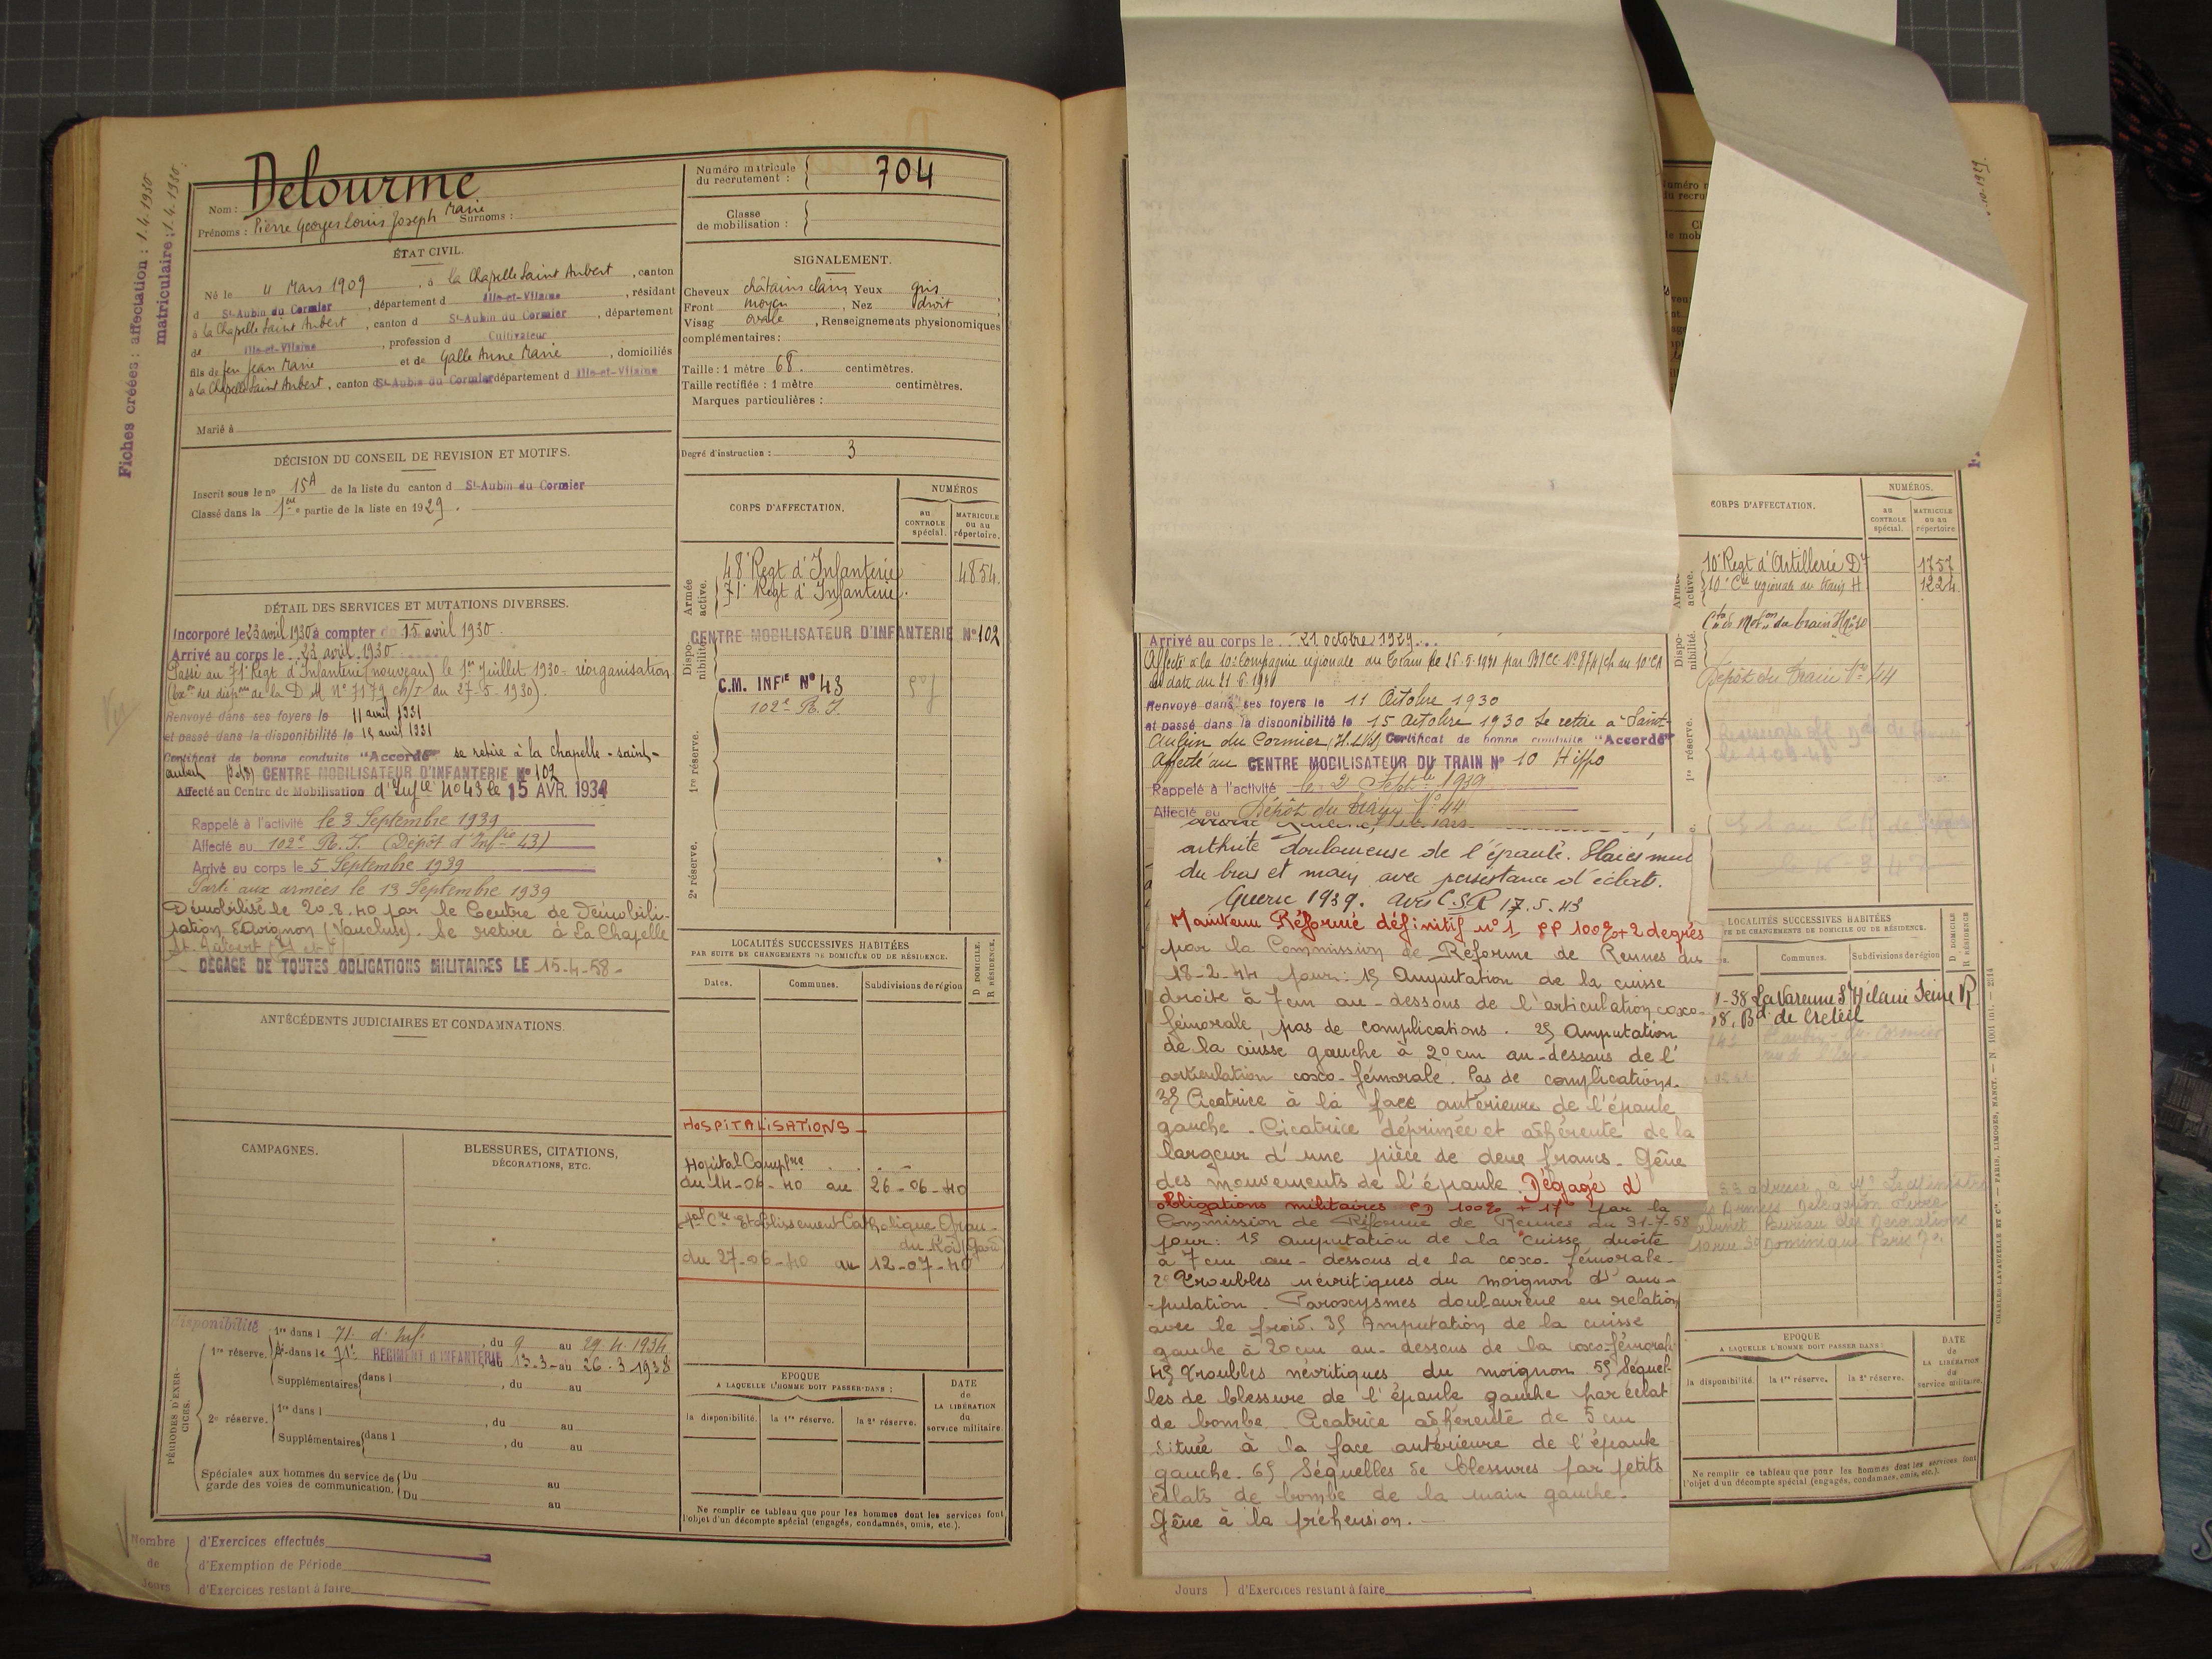 Fiches créées : affectation : 1.4.1930
matriculaire : 1.4.1930
Nom : Delourme
Prénoms : Pierre Georges Louis Joseph Marie Surnoms :
Numéro matricule
du recrutement : 704
Classe
de mobilisation :
ÉTAT CIVIL.
Né le 11 Mars 1909, à la Chapelle Saint Aubert, canton
d St-Aubin du Cormier, département d Ille-et-Vilaine, résidant
à la Chapelle Saint Aubert, canton d St-Aubin du Cormier, département
de Ille-et-Vilaine, profession d Cultivateur
fils de feu Jean Marie et de Galle Anne Marie, domiciliés
à la Chapelle Saint Aubert, canton d St-Aubin du Cormier département d Ille-et-Vilaine
Marié à
SIGNALEMENT.
Cheveux châtains clairs Yeux gris,
Front moyen, Nez droit
Visag ovale, Renseignements physionomiques
complémentaires :
Taille : 1 mètre 68. centimètres.
Taille rectifiée : 1 mètre centimètres.
Marques particulières :
Degré d'instruction : 3
DÉCISION DU CONSEIL DE REVISION ET MOTIFS.
Inscrit sous le no 15A de la liste du canton d St-Aubin du Cormier
Classé dans la 1ère partie de la liste en 1929.
CORPS D'AFFECTATION.
NUMÉROS
AU CONTROLE spécial.
MATRICULE OU AU répertoire.
Armée active.
48e Regt d'Infanterie 4854.
71e Regt d'Infanterie.
Disponibilité.
CENTRE MOBILISATEUR D'INFANTERIE No 102
C.M. INFIE No 43
102e R.I.
1re réserve.
2e réserve.
DÉTAIL DES SERVICES ET MUTATIONS DIVERSES.
Incorporé le 23 avril 1930 à compter du 15 avril 1930.
Arrivé au corps le 23 avril 1930
Passé au 71e Regt d'Infanterie (nouveau) le 1er Juillet 1930 = réorganisation.
(Exon des dispons de la D.M. No 7179 ch/I du 27-5-1930).
Renvoyé dans ses foyers le 11 avril 1931
et passé dans la disponibilité le 15 avril 1931
Certificat de bonne conduite "Accordé" se retire à la chapelle-saint-
aubert (I&V) CENTRE MOBILISATEUR D'INFANTERIE No 102
Affecté au Centre de Mobilisation d'Infie No 43 le 15 AVR. 1934
Rappelé à l'activité le 3 Septembre 1939
Affecté au 102e R.I. (Dépôt d'Infie 43)
Arrivé au corps le 5 Septembre 1939
Parti aux armées le 13 Septembre 1939
Démobilisé le 20-8-40 par le Centre de Démobili-
sation d'Avignon (Vaucluse). Se retire à La Chapelle
St. Aubert (I et V)
DÉGAGÉ DE TOUTES OBLIGATIONS MILITAIRES LE 15-4-58-
ANTÉCÉDENTS JUDICIAIRES ET CONDAMNATIONS.
LOCALITÉS SUCCESSIVES HABITÉES
PAR SUITE DE CHANGEMENTS DE DOMICILE OU DE RÉSIDENCE.
Dates.
Communes.
Subdivisions de région
D DOMICILE.
R RÉSIDENCE.
HOSPITALISATIONS
Hopital Complre
du 14-06-40 au 26-06-40
Hal Cre Etablissement Catholique Grau-
du Roi (Gard)
du 27-06-40 au 12-07-40
CAMPAGNES.
BLESSURES, CITATIONS,
DÉCORATIONS, ETC.
PÉRIODES D'EXERCICES.
disponibilité
1re réserve. 1re dans l 71e d'Inf, du 9 au 29.4.1934
dans le 71e RÉGIMENT D'INFANTERIE du 13.3 au 26.3.1938
Supplémentaires dans l, du au
2e réserve. 1re dans l, du au
Supplémentaires dans l, du au
Spéciales aux hommes du service de garde des voies de communication. Du au
Du au
EPOQUE
A LAQUELLE L'HOMME DOIT PASSER DANS :
la disponibilité.
la 1re réserve.
la 2e réserve.
DATE
de
LA LIBÉRATION
du
service militaire.
Ne remplir ce tableau que pour les hommes dont les services font
l'objet d'un décompte spécial (engagés, condamnés, omis, etc.).
Nombre de Jours
d'Exercices effectués
d'Exemption de Période
d'Exercices restant à faire
Arrivé au corps le 21 octobre 1929
Affecté à la 10e Compagnie régionale du Train le 16-5-1930
en date du 21-6-1930
Renvoyé dans ses foyers le 11 Octobre 1930
et passé dans la disponibilité le 15 Octobre 1930 Se retire à Saint-
Aubin du Cormier (Il.&Vil) Certificat de bonne conduite "Accordé"
Affecté au CENTRE MOBILISATEUR DU TRAIN No 10 Hippo
Rappelé à l'activité le 2 Septbre 1939
Affecté au Dépôt du Train No 44
arthrite douloureuse de l'épaule. Plaies mul
du bras et main avec persistance d'éclats.
Guerre 1939. Avis C.S.R 17.5.43
Maintenu Réformé définitif no 1, PP 100% + 2 degrés
par la Commission de Réforme de Rennes du
18-2-44 pour : 1° Amputation de la cuisse
droite à 7cm au-dessous de l'articulation coxo-
fémorale, pas de complications. 2° Amputation
de la cuisse gauche à 20cm au-dessous de l'
articulation coxo-fémorale. Pas de complications.
3° Cicatrice à la face antérieure de l'épaule
gauche. Cicatrice déprimée et adhérente de la
largeur d'une pièce de deux francs. Gêne
des mouvements de l'épaule. Dégagé d'
obligations militaires PD 100% + 17° par la
Commission de Réforme de Rennes du 31-7-58
pour : 1° amputation de la cuisse droite
à 7cm au-dessous de la coxo-fémorale.
2° Troubles névritiques du moignon d'am-
putation. Paroxysmes douloureux en relation
avec le froid. 3° Amputation de la cuisse
gauche à 20cm au-dessous de la coxo-fémorale
4° Troubles névritiques du moignon. 5° Séquel-
les de blessure de l'épaule gauche par éclat
de bombe. Cicatrice adhérente de 5 cm
située à la face antérieure de l'épaule
gauche. 6° Séquelles de blessures par petits
éclats de bombe de la main gauche.
Gêne à la préhension.
Jours d'Exercices restant à faire
CORPS D'AFFECTATION.
NUMÉROS.
AU CONTROLE spécial.
MATRICULE OU AU répertoire
10e Regt d'Artillerie Dre 1757
10e Cie régionale du train H. 1224
Dépôt du Train No 44
1re réserve.
LOCALITÉS SUCCESSIVES HABITÉES
TE DE CHANGEMENTS DE DOMICILE OU DE RÉSIDENCE.
Communes.
Subdivisions de région
D DOMICILE
R RÉSIDENCE
-38 La Varenne St Hilaire Seine R
58, Bd de Creteil
St Aubin-du-Cormier
10 rue St Dominique Paris 7e
EPOQUE
A LAQUELLE L'HOMME DOIT PASSER DANS :
la disponibilité.
la 1re réserve.
la 2e réserve.
DATE
de
LA LIBÉRATION
du
service militaire.
Ne remplir ce tableau que pour les hommes dont les services font
l'objet d'un décompte spécial (engagés, condamnés, omis, etc.).
CHARLES-LAVAUZELLE ET Cie — PARIS, LIMOGES, NANCY.